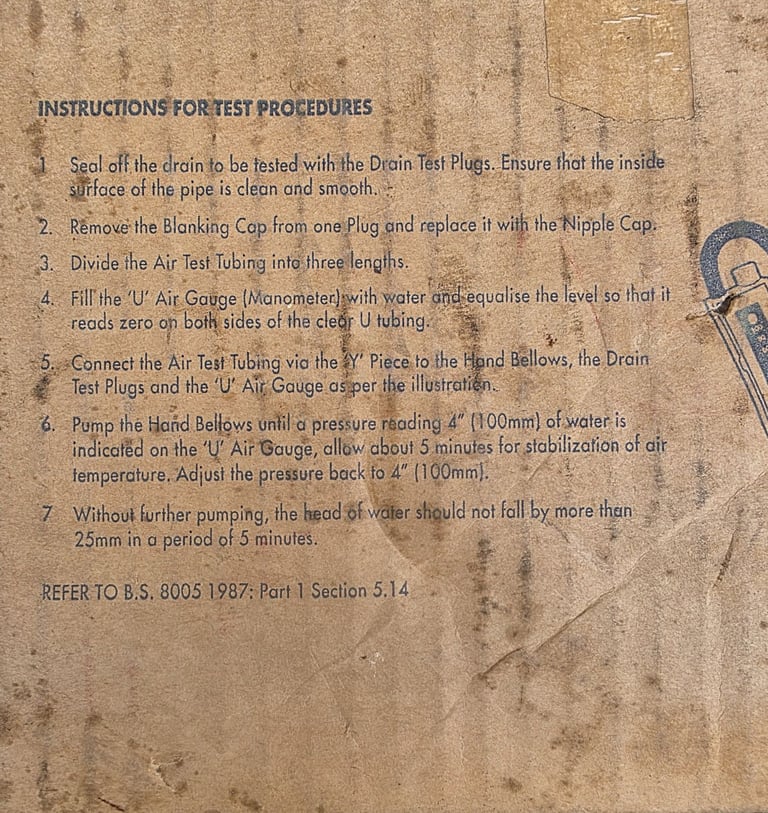 INSTRUCTIONS FOR TEST PROCEDURES
1 Seal off the drain to be tested with the Drain Test Plugs. Ensure that the inside
surface of the pipe is clean and smooth.
2. Remove the Blanking Cap from one Plug and replace it with the Nipple Cap.
3. Divide the Air Test Tubing into three lengths.
4. Fill the 'U' Air Gauge (Manometer) with water and equalise the level so that it
reads zero on both sides of the clear U tubing.
5. Connect the Air Test Tubing via the 'Y' Piece to the Hand Bellows, the Drain
Test Plugs and the 'U' Air Gauge as per the illustration.
6. Pump the Hand Bellows until a pressure reading 4" (100mm) of water is
indicated on the 'U' Air Gauge, allow about 5 minutes for stabilization of air
temperature. Adjust the pressure back to 4" (100mm).
7 Without further pumping, the head of water should not fall by more than
25mm in a period of 5 minutes.
REFER TO B.S. 8005 1987: Part 1 Section 5.14